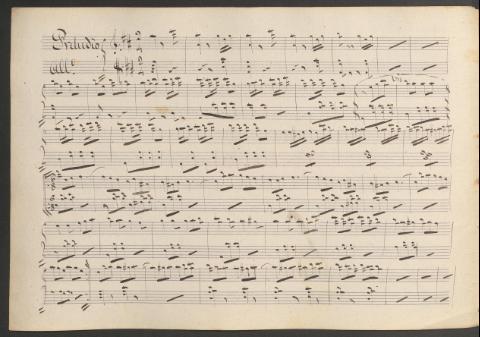 Preludio
All.º